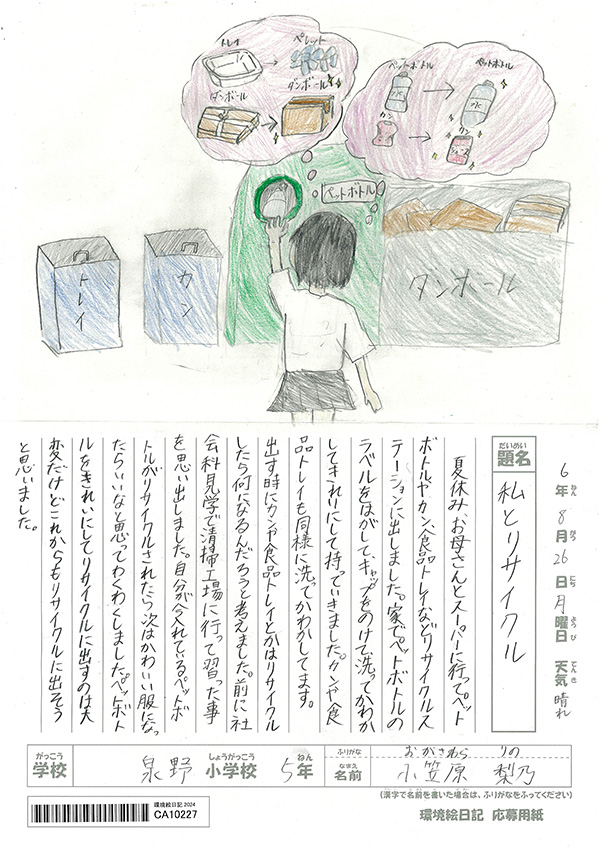 トレイ
ペレット
ダンボール
ダンボール
ペットボトル
ペットボトル
水
水
カン
カン
ジュース
ペットボトル
トレイ
カン
ダンボール
6年 8月 26日 月曜日 天気 晴れ
ねん がつ にち ようび てんき
だいめい
題名
私とリサイクル
夏休み、お母さんとスーパーに行ってペット
ボトルやカン、食品トレイなどリサイクルス
テーションに出しました。家でペットボトルの
ラベルをはがして、キャップをのけて洗ってかわか
してきれいにして持っていきました。カンや食
品トレイも同様に洗ってかわかしてます。
出す時にカンや食品トレイとかはリサイクル
したら何になるんだろうと考えました。前に社
会科見学で清掃工場に行って習った事
を思い出しました。自分が今入れているペットボ
トルがリサイクルされたら次はかわいい服になっ
たらいいなと思ってわくわくしました。ペットボト
ルをきれいにしてリサイクルに出すのは大
変だけどこれからもリサイクルに出そう
と思いました。
がっこう しょうがっこう ねん
学校 泉野 小学校 5年
ふりがな おがさわら りの
なまえ
名前 小笠原 梨乃
(漢字で名前を書いた場合は、ふりがなをふってください)
環境絵日記 2024
CA10227
環境絵日記 応募用紙